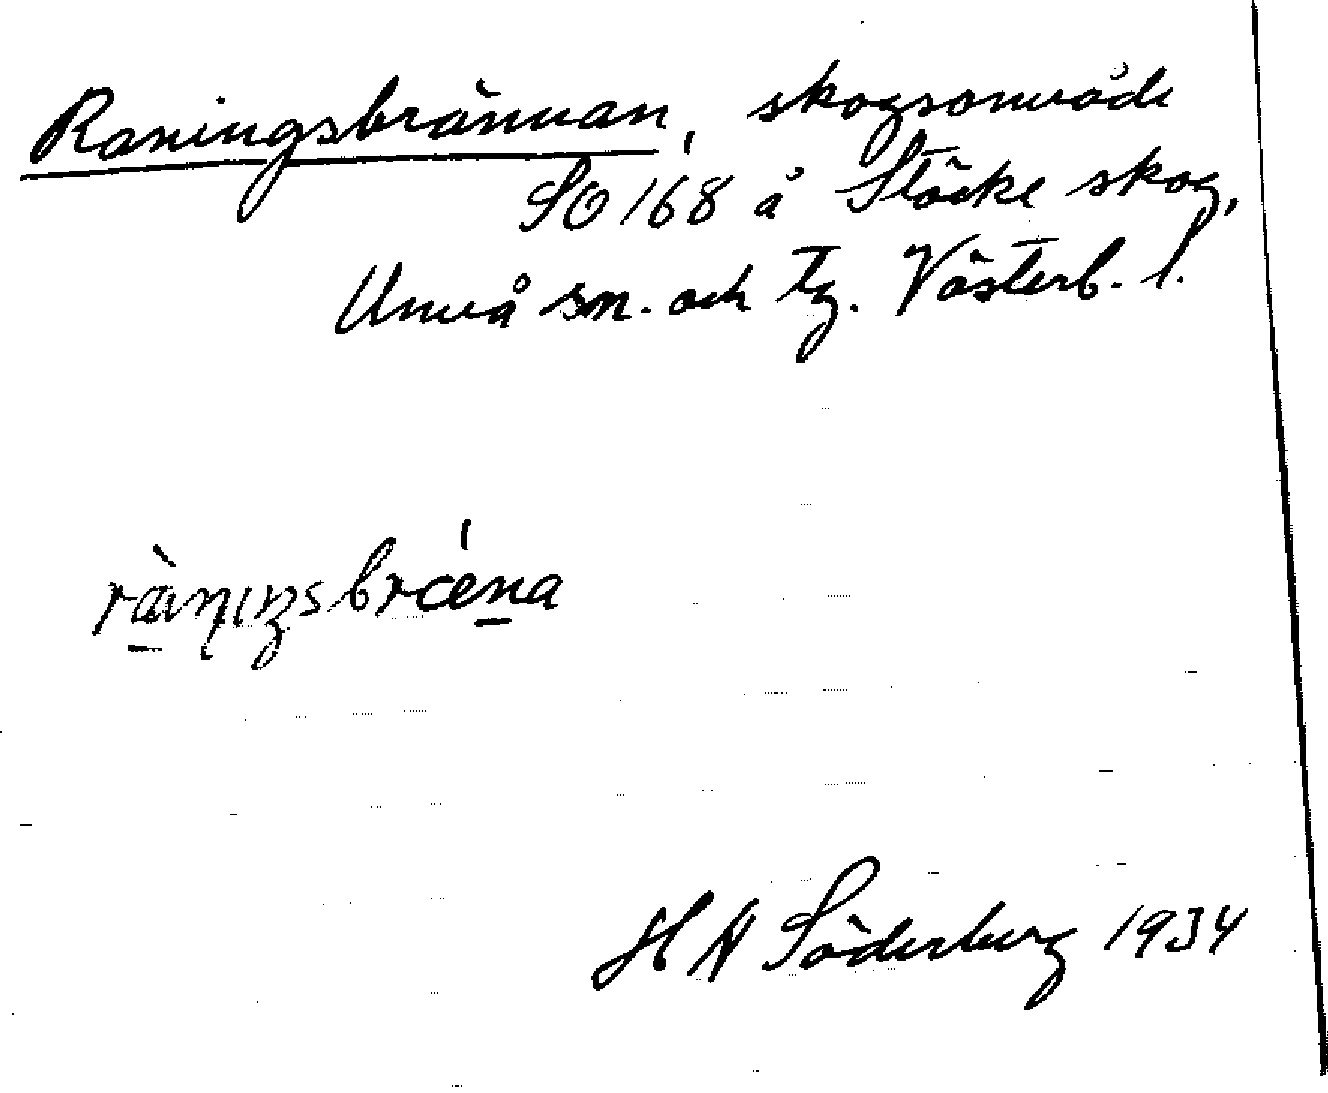 Raningsbrännan, skogsområde
SO 168 å Stöcke skog,
Umeå sn. och tg. Västerb. l.
H N Söderberg 1934